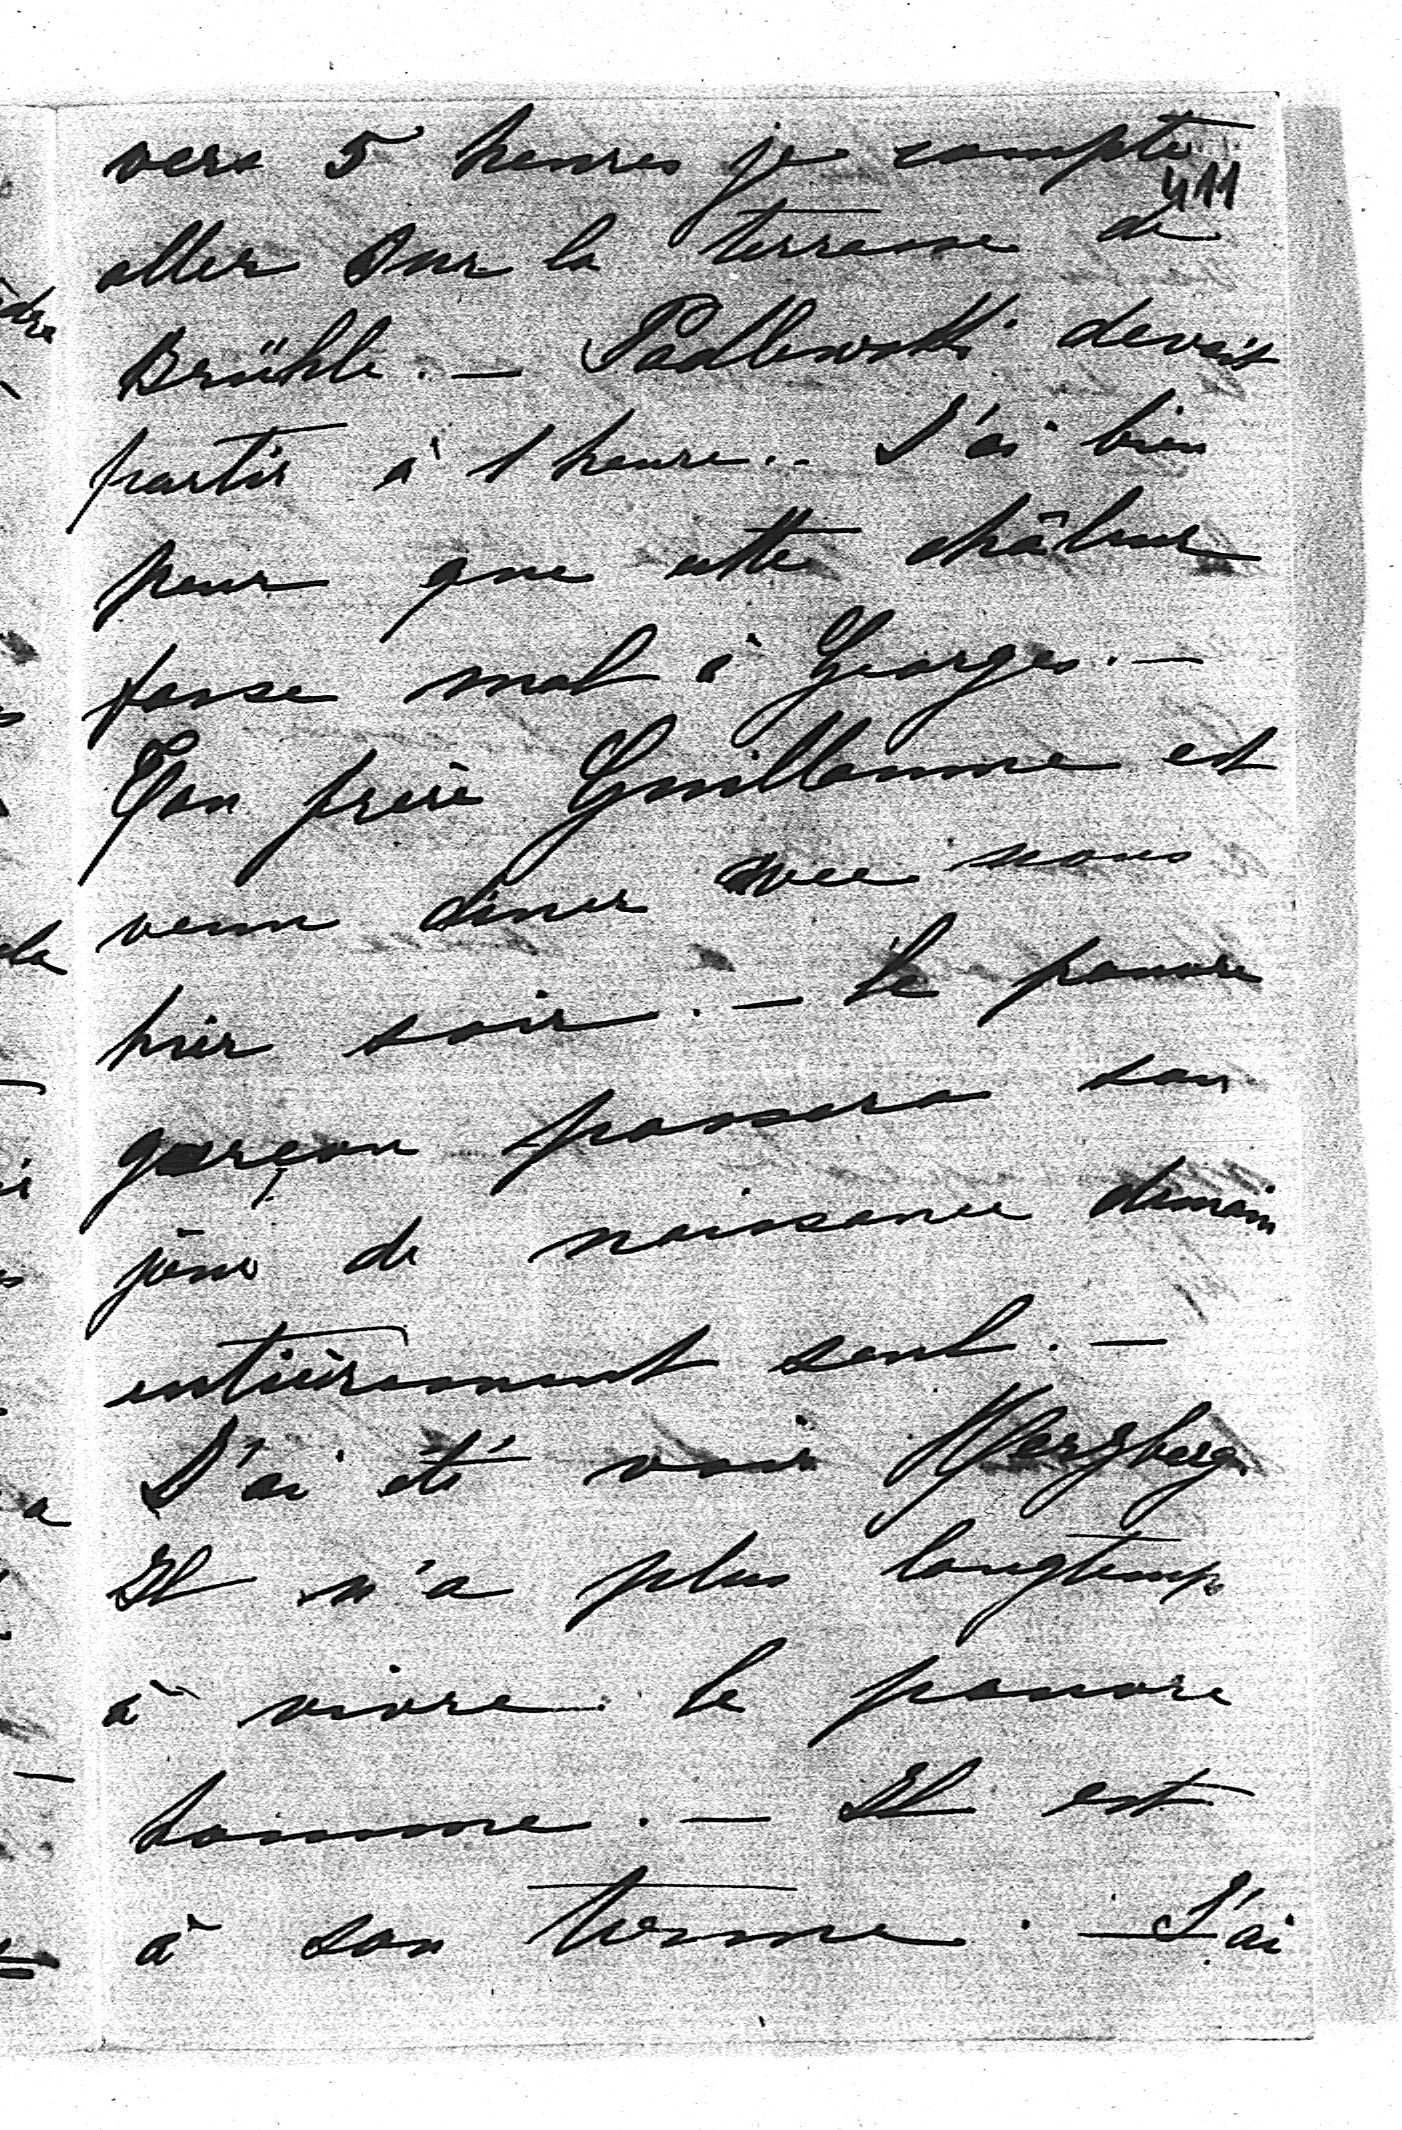 vers 5 heures je compte
411
aller sur la terrasse de
Brühle. — Padlewski devait
partir à 1 heure.. J'ai bien
peur que cette châleur
fasse mal à Georges. —
Ton frère Guillaume est
venu diner avec nous
hier soir. — Le pauvre
garçon passera son
jour de naissance demain
entièrement seul. —
J'ai été voir Herzberg
Il n'a plus longtemps
à vivre le pauvre
homme. — Il est
à son terme. — J'ai